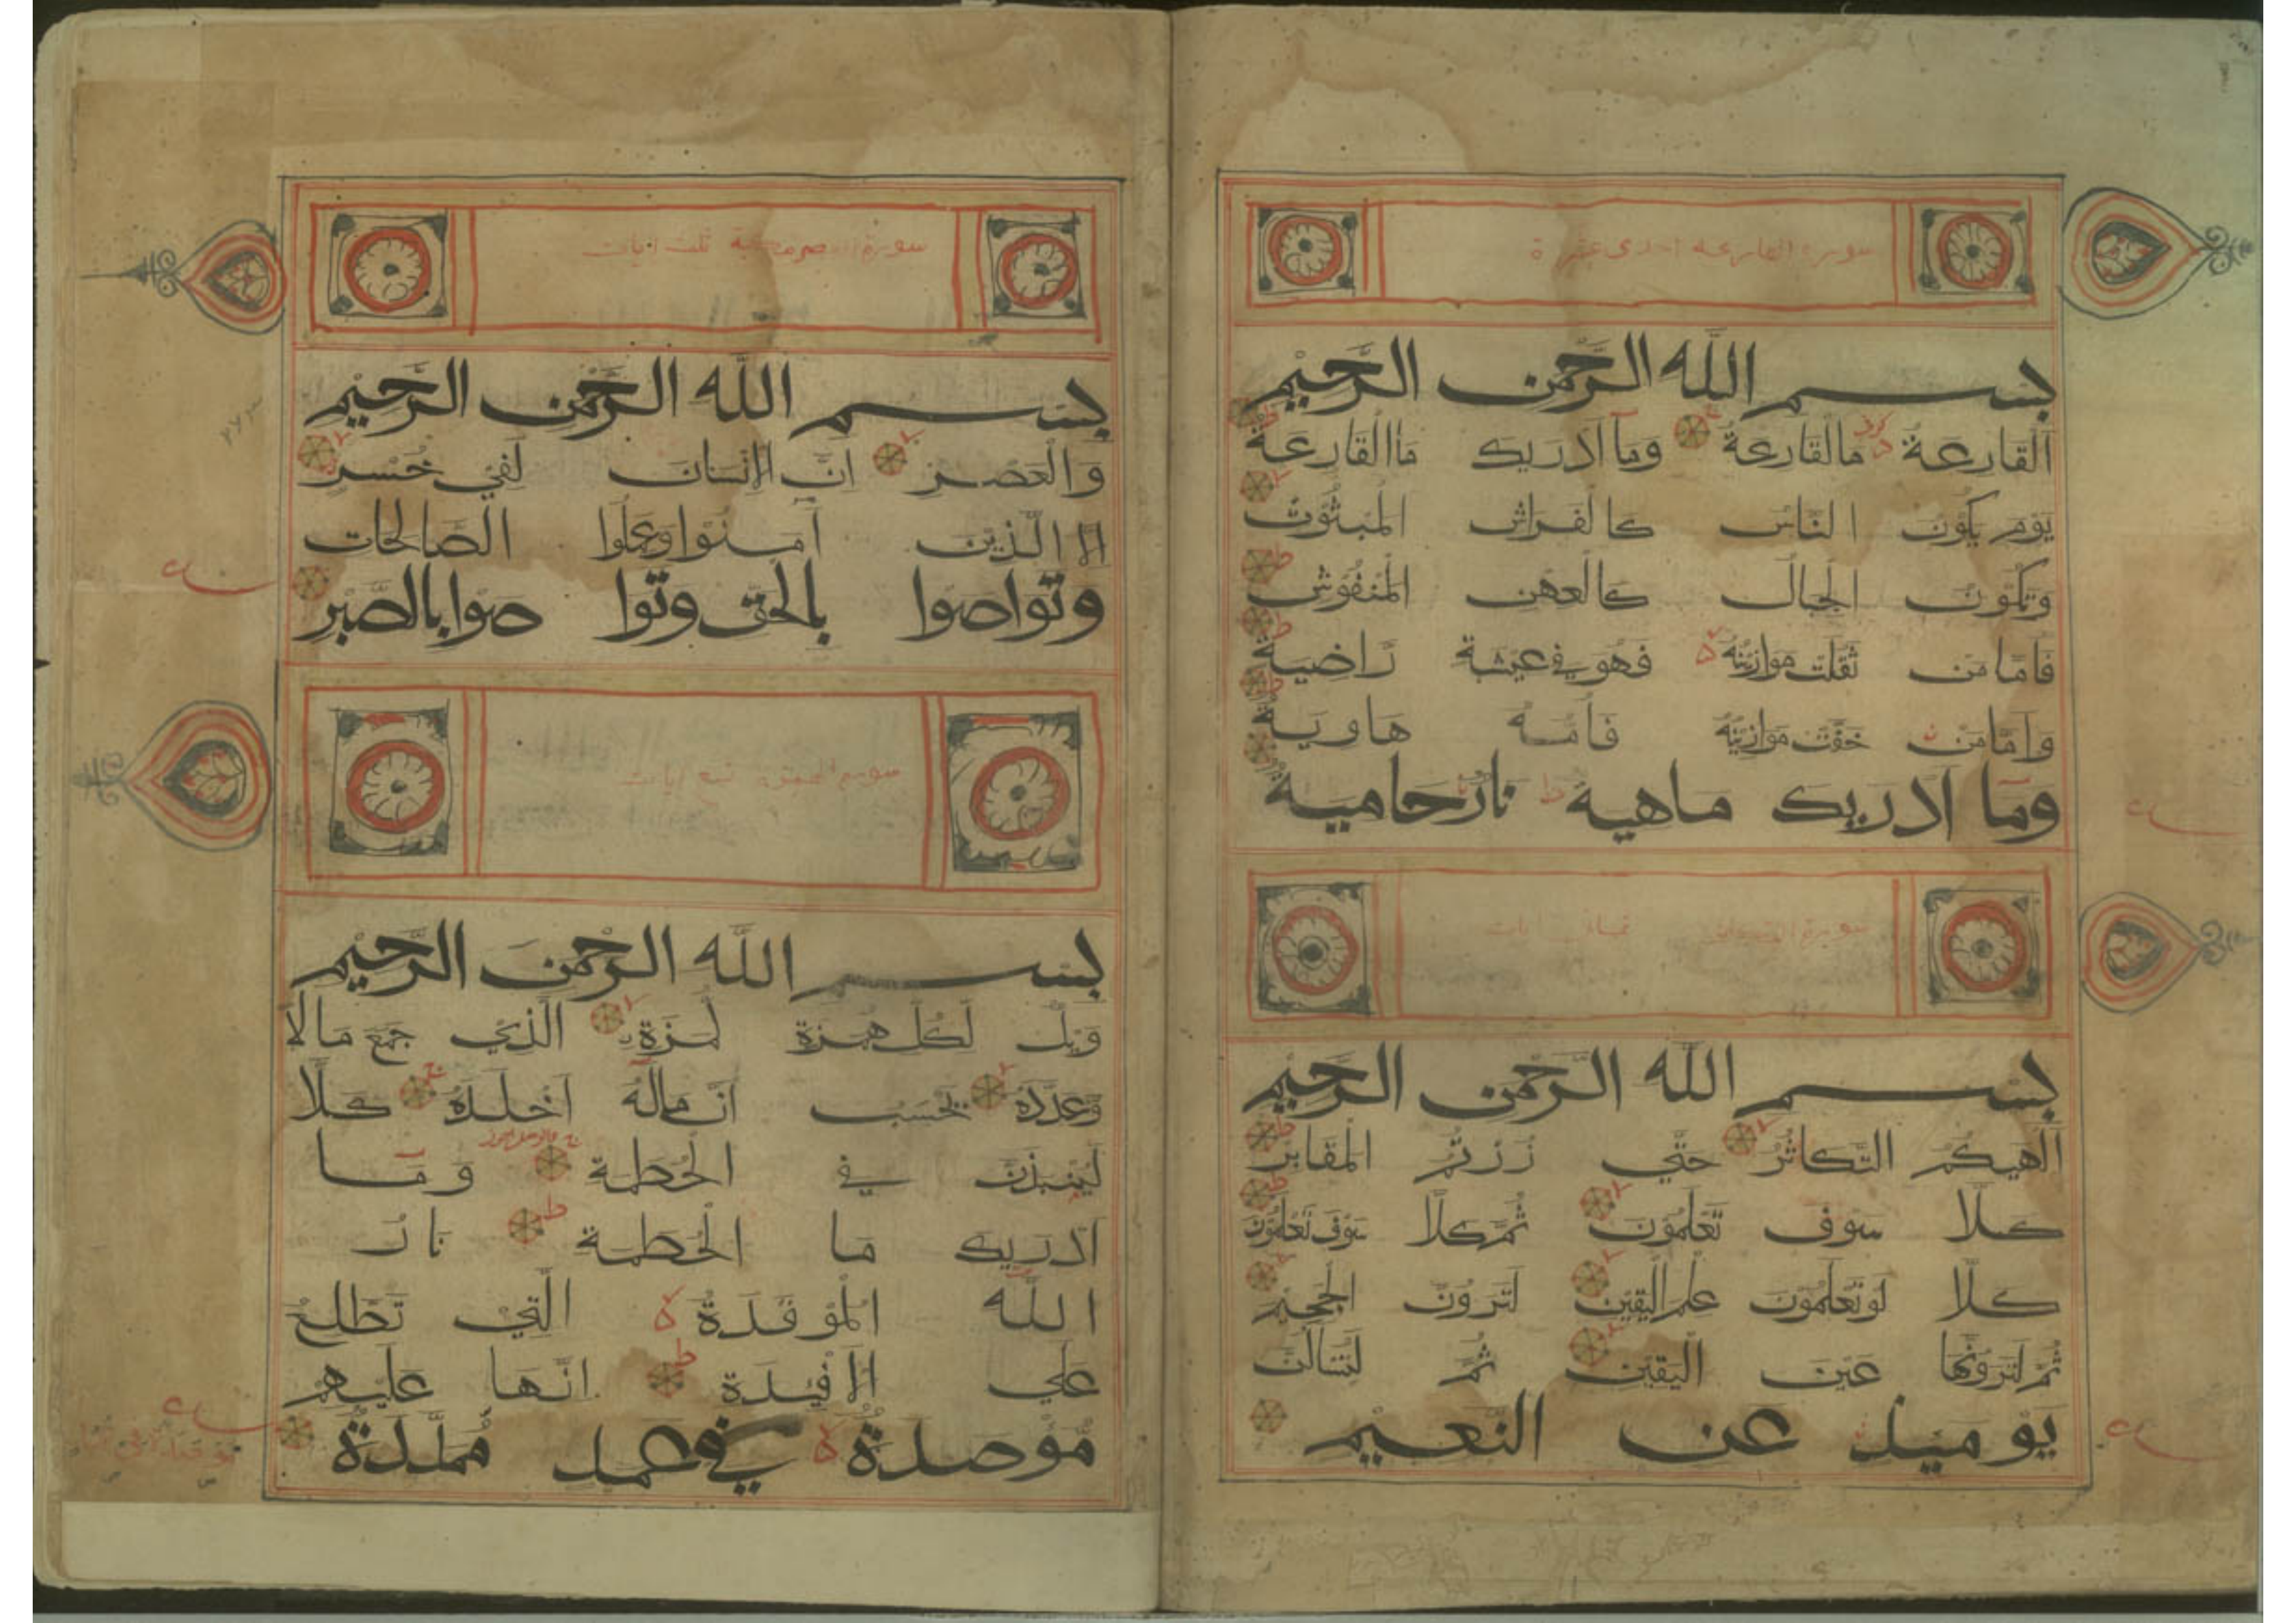 سورة القارعة احدى عشرة
بسم الله الرحمن الرحيم
القارعة مالقارعة وما ادريك ماالقارعة
يوم يكون الناس كالفراش المبثوث
وتكون الجبال كالعهن المنفوش
فاما من ثقلت موازينه فهو في عيشة راضية
واما من خفت موازينه فامه هاوية
وما ادريك ماهية نار حامية
سورة التكاثر ثمانى ايات
بسم الله الرحمن الرحيم
الهيكم التكاثر حتي زرتم المقابر
كلا سوف تعلمون ثم كلا سوف تعلمون
كلا لو تعلمون علم اليقين لترون الجحيم
ثم لترونها عين اليقين ثم لتسالن
يوميذ عن النعيم
سورة العصر مكية ثلث ايات
بسم الله الرحمن الرحيم
والعصر ان الانسان لفي خسر
الا الذين آمنوا وعملوا الصالحات
وتواصوا بالحق وتوا صوا بالصبر
سورة الهمزة تسع ايات
بسم الله الرحمن الرحيم
ويل لكل همزة لمزة الذي جمع مالا
وعدده يحسب ان ماله اخلده كلا
لينبذن في الحطمة وما
ادريك ما الحطمة نار
الله الموقدة التي تطلع
علي الافيدة انها عليهم
موصدة في عمد ممددة